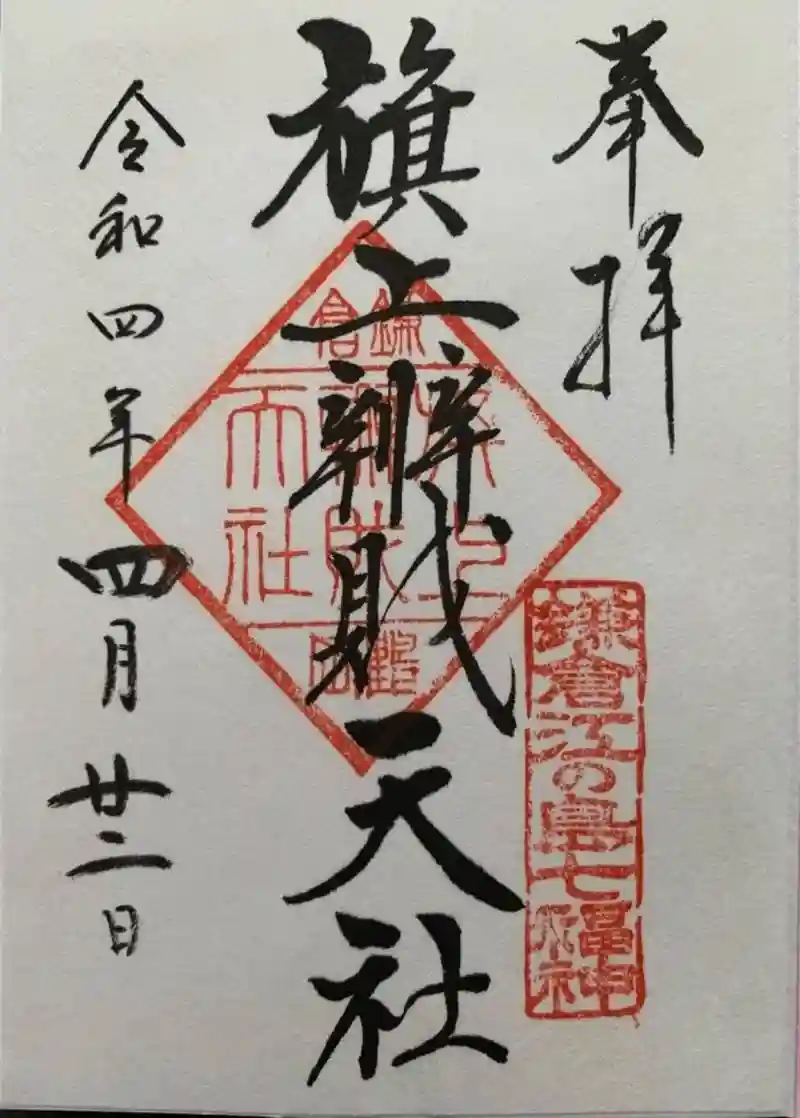 奉拝
鎌倉江の島七福神
旗上辨財天社
鎌倉
旗上
辨財
天社
鶴岡
令和四年四月廿二日